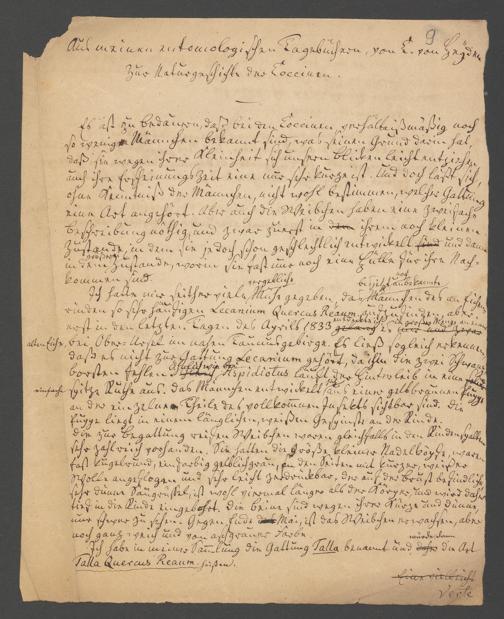 9
Aus meinen entomologischen Tagebüchern, von C. von Heyden
Zur Naturgeschichte der Coccinen.
Es ist zu bedauern, daß bei den Coccinen verhältnißmäßig noch
so wenige Männchen bekannt sind, was seinen Grund darin hat,
daß sie wegen ihrer Kleinheit sich unsern Blicken leicht entziehen
und ihre Erscheinungszeit eine nur sehr kurze ist. Und doch läßt sich,
ohne Kenntniß der Männchen, nicht wohl bestimmen, welcher Gattung
eine Art angehört. Aber auch die Weibchen haben eine zweifache
Beschreibung nöthig, und zwar zuerst in ihrem noch kleinen
Zustande, in dem sie jedoch schon geschlechtlich entwickelt sind und dann
in dem Zustande, worin sie fast nur noch eine Hülle für ihre Nach-
kommen sind.
vergebliche
Ich hatte mir seither viele Mühe gegeben, das Männchen des an Eichen-
rinden so sehr häufigen Lecanium Quercus Reaum. aufzufinden, aber
erst in den letzten Tagen des Aprils 1853
alten Eiche, bei Ober-Ursel im nahen Taunusgebirge. Es ließ sogleich erkennen,
daß es nicht zur Gattung Lecanium gehört, da ihm die zwei Schwanz-
borsten fehlen. Aspidiotus läuft der Hinterleib in eine
einfache spitze Röhre aus. Das Männchen entwickelt sich in einer gelbbraunen Puppe
an der die einzelnen Theile des vollkommnen Insekts sichtbar sind. Die
Puppe liegt in einem länglichen, weißen Gespinnste an der Rinde.
Die zur Begattung reifen Weibchen waren gleichfalls in den Rindenspalten
sehr zahlreich vorhanden. Sie hatten die Größe kleiner Nadelköpfe, waren
fast kugelrund, einfarbig gelblichgrau, an den Seiten mit kurzer, weißer
Wolle angeflogen und sehr leicht zerdrückbar, der auf der Brust befindliche
sehr dünne Saugrüssel, ist wohl viermal länger als der Körper und wird daher
tief in die Rinde eingebohrt. Die Beine sind wegen ihrer Kürze und Dünne
nur schwer zu sehen. Gegen Ende Mai, ist das Weibchen erwachsen, aber
noch ganz weich und von aschgrauer Farbe.
Ich habe in meiner Samlung die Gattung Talla benannt und die Art
Talla Quercus Reaum. heißen.
Verte